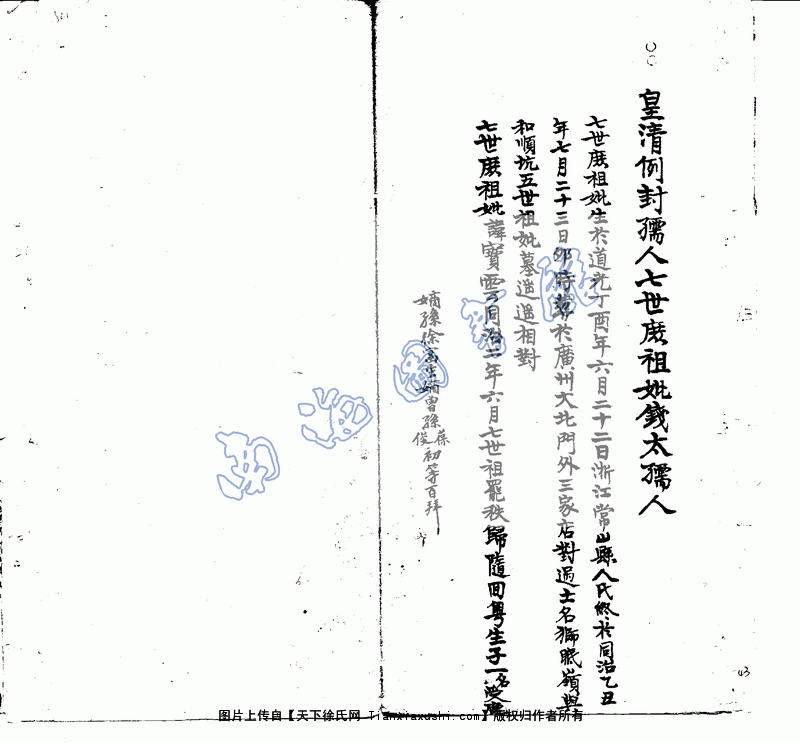 皇清例封孺人七世庶祖妣錢太孺人
七世庶祖妣生於道光丁酉年六月二十二日浙江常山縣人氏終於同治乙丑
年七月二十三日卯時葬於廣州大北門外三家店對過土名獅眠嶺與
和順坑五世祖妣墓遙遙相對
七世庶祖妣諱寶雲同治二年六月七世祖罷秩歸隨回粵生子一名
嫡孫徐嫡曾孫葆俊初等百拜
43
图片上传自【天下徐氏网 Tianxiaxushi.com】版权归作者所有